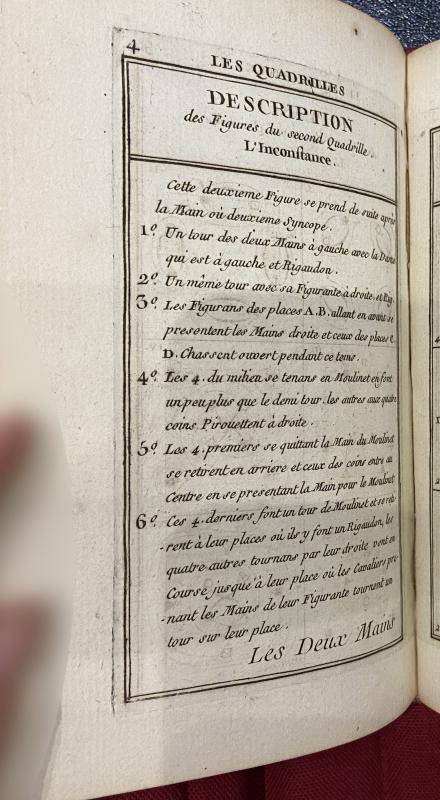 4
LES QUADRILLES
DESCRIPTION
des Figures du second Quadrille.
L'Inconstance.
Cette deuxieme Figure se prend de suite après
la Main où deuxieme Syncope.
1º. Un tour des deux Mains à gauche avec la Dame
qui est à gauche et Rigaudon.
2º. Un même tour avec sa Figurante à droite, et Rig.
3º. Les Figurans des places A.B. allant en avant se
presentent les Mains droite et ceux des places C.
D. Chassent ouvert pendant ce tems.
4º. Les 4. du milieu se tenans en Moulinet en font
un peu plus que le demi tour. les autres aux quatre
coins Pirouettent à droite.
5º. Les 4. premiers se quittant la Main du Moulinet
se retirent en arriere et ceux des coins entre au
Centre en se presentant la Main pour le Moulinet
6º. Ces 4. derniers font un tour de Moulinet et se reti-
-rent à leur places où ils y font un Rigaudon, les
quatre autres tournans par leur droite vont en
Course jusqu'à leur place où les Cavaliers pre-
-nant les Mains de leur Figurante tournent un
tour sur leur place.
Les Deux Mains